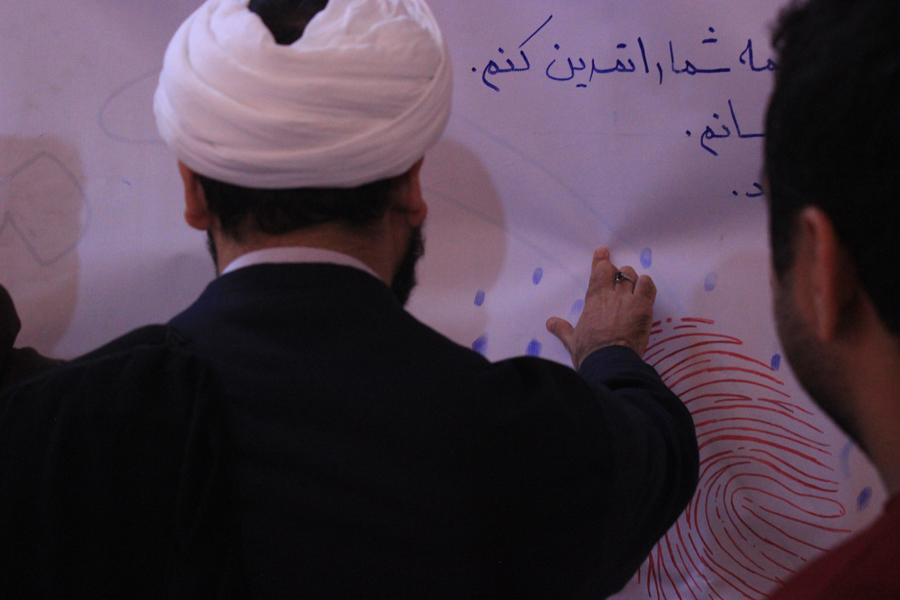 مه شما را تمرین کنم.
سانم.
د.